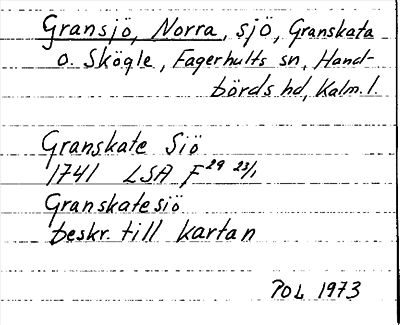 Gransjö, Norra, sjö, Granskata
o. Skögle, Fagerhults sn, Hand-
börds hd, Kalm. l.
Granskate Siö
1741 LSA F 29 23/1
Granskatesiö
beskr. till kartan
POL 1973